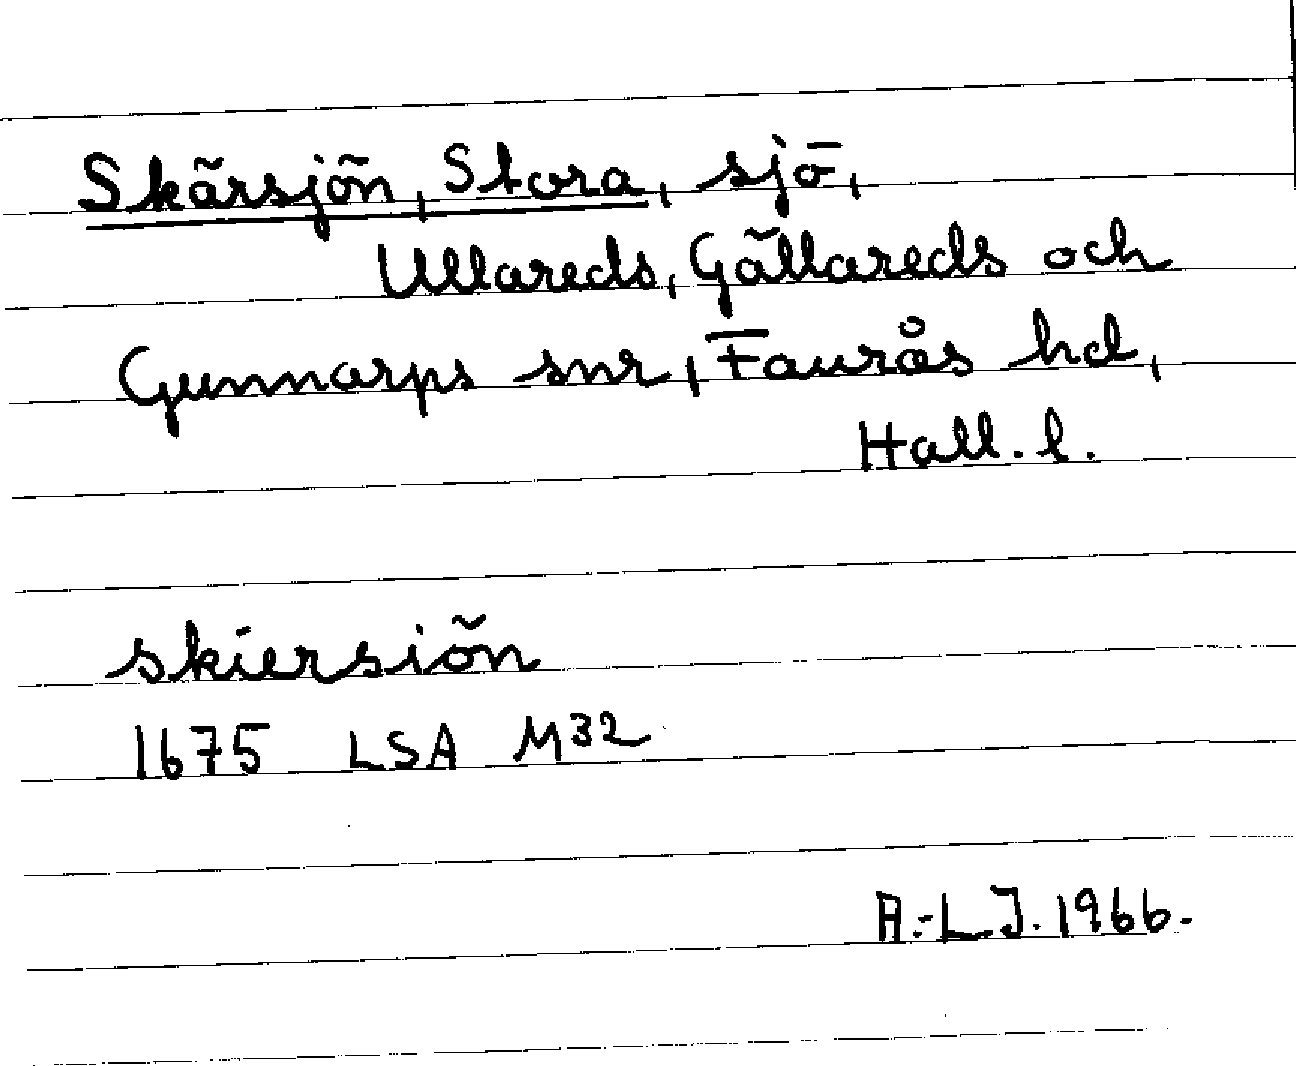 Skärsjön, Stora, sjö,
Ullareds, Gällareds och
Gunnarps snr, Faurås hd,
Hall. l.
skiersiön
1675 LSA M32
A.-L.J. 1966.